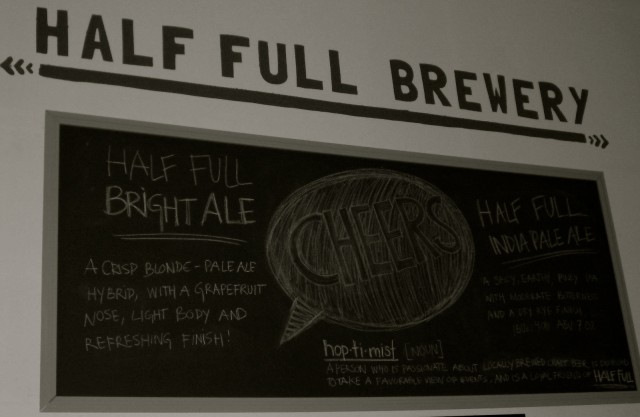 HALF FULL BREWERY
HALF FULL
BRIGHT ALE
A CRISP BLONDE-PALE ALE
HYBRID, WITH A GRAPEFRUIT
NOSE, LIGHT BODY AND
REFRESHING FINISH!
CHEERS
HALF FULL
INDIA PALE ALE
A SPICY, EARTHY,
WITH MODERATE
AND A FINISH
hop·ti·mist [NOUN]
A PERSON WHO IS PASSIONATE ABOUT LOCALLY BREWED CRAFT BEER,
TO TAKE A FAVORABLE VIEW OF EVENTS, AND IS A LOYAL
HALF FULL